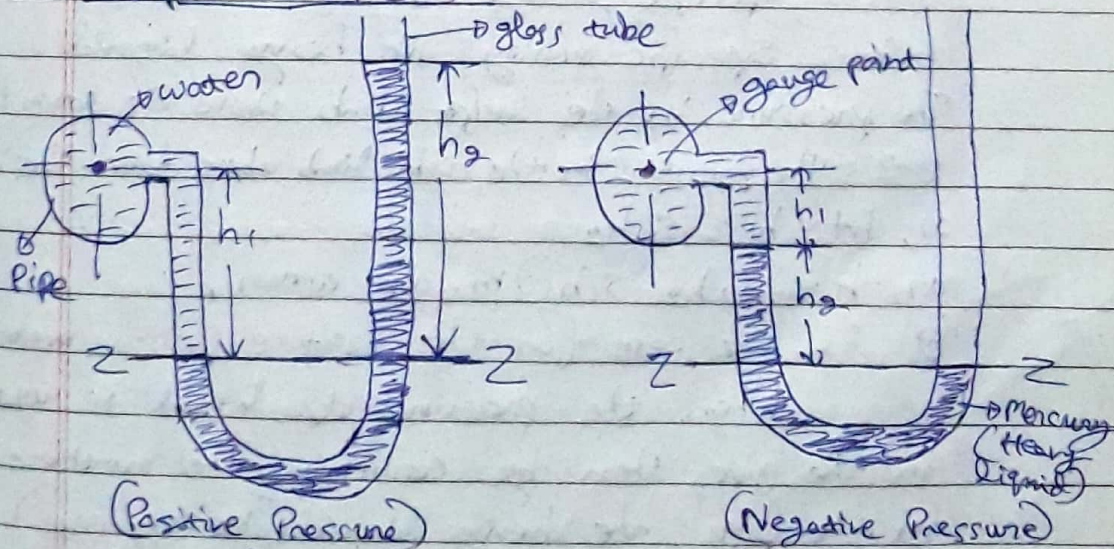 gloss tube
water
h2
h1
Pipe
Z
Z
(Positive Pressure)
gauge point
h1
h2
Z
Z
Mercury
(Heavy
liquid)
(Negative Pressure)